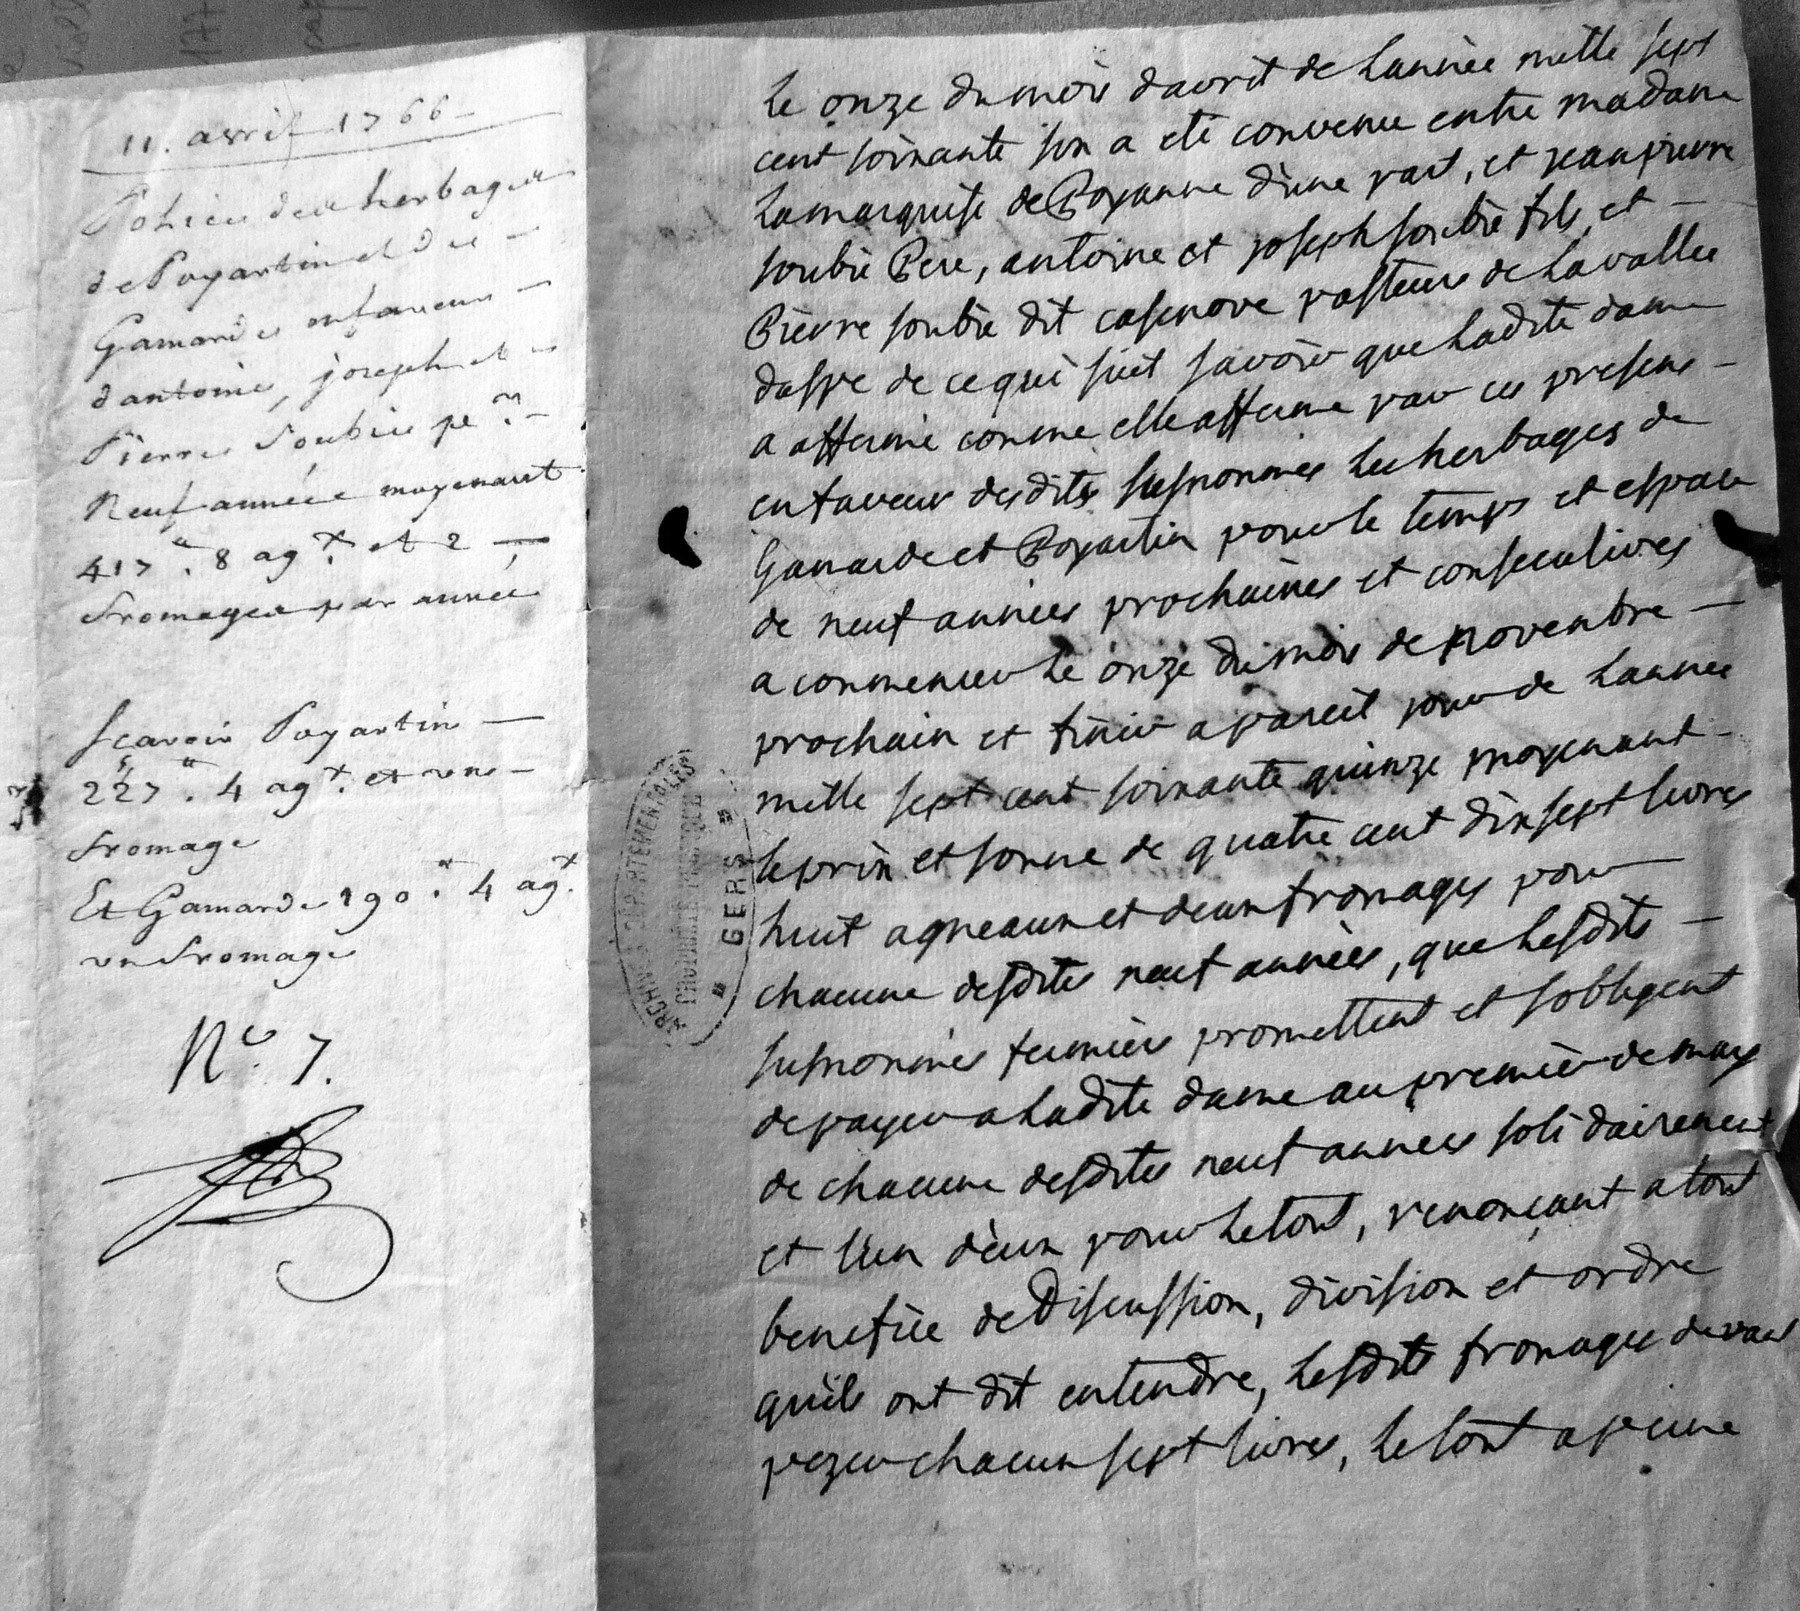 11. avril 1766
Police des herbages
de Poyartin et de
Gamarde enfaveur
dantoine, joseph et
Pierre Soubie pr.
Neuf années moyenant
417ʰ. 8 agx. et 2
fromages par année
Scavoir Poyartin
227ʰ. 4 agx. et un
fromage
Et Gamarde 190ʰ. 4 agx.
un fromage
No. 7.
Le onze du mois davril de Lannée mille sept
cent soixante six a eté convenu entre madame
Lamarquise de Poyanne dune part, et jean pierre
soubie Pere, antoine et joseph soubie fils, et
Pierre soubie dit casenove pasteurs de Lavallée
daspe de cequi suit savoir que Ladite dame
a affermé comme elle afferme par ces presens
enfaveur desdits susnommés Les herbages de
Gamarde et Poyartin pour le temps et espace
de neuf années prochaines et consecutives
a commencer Le onze du mois de novembre
prochain et finir a pareil jour de Lannée
mille sept cent soixante quinze moyenant
Leprix et somme de quatre cent dixsept livres
huit agneaux et deux fromages pour
chacune desdites neuf années, que Lesdits
susnommés fermiers promettent et sobligent
de payer a Ladite dame au premier de may
de chacune desdites neuf années solidairement
et lun deux pour Letout, renonçant a tout
benefice de Discussion, division et ordre
quils ont dit entendre, Lesdits fromages devant
pezer chacun sept livres, Le tout a peine
ARCHIVES DÉPARTEMENTALES
GERS